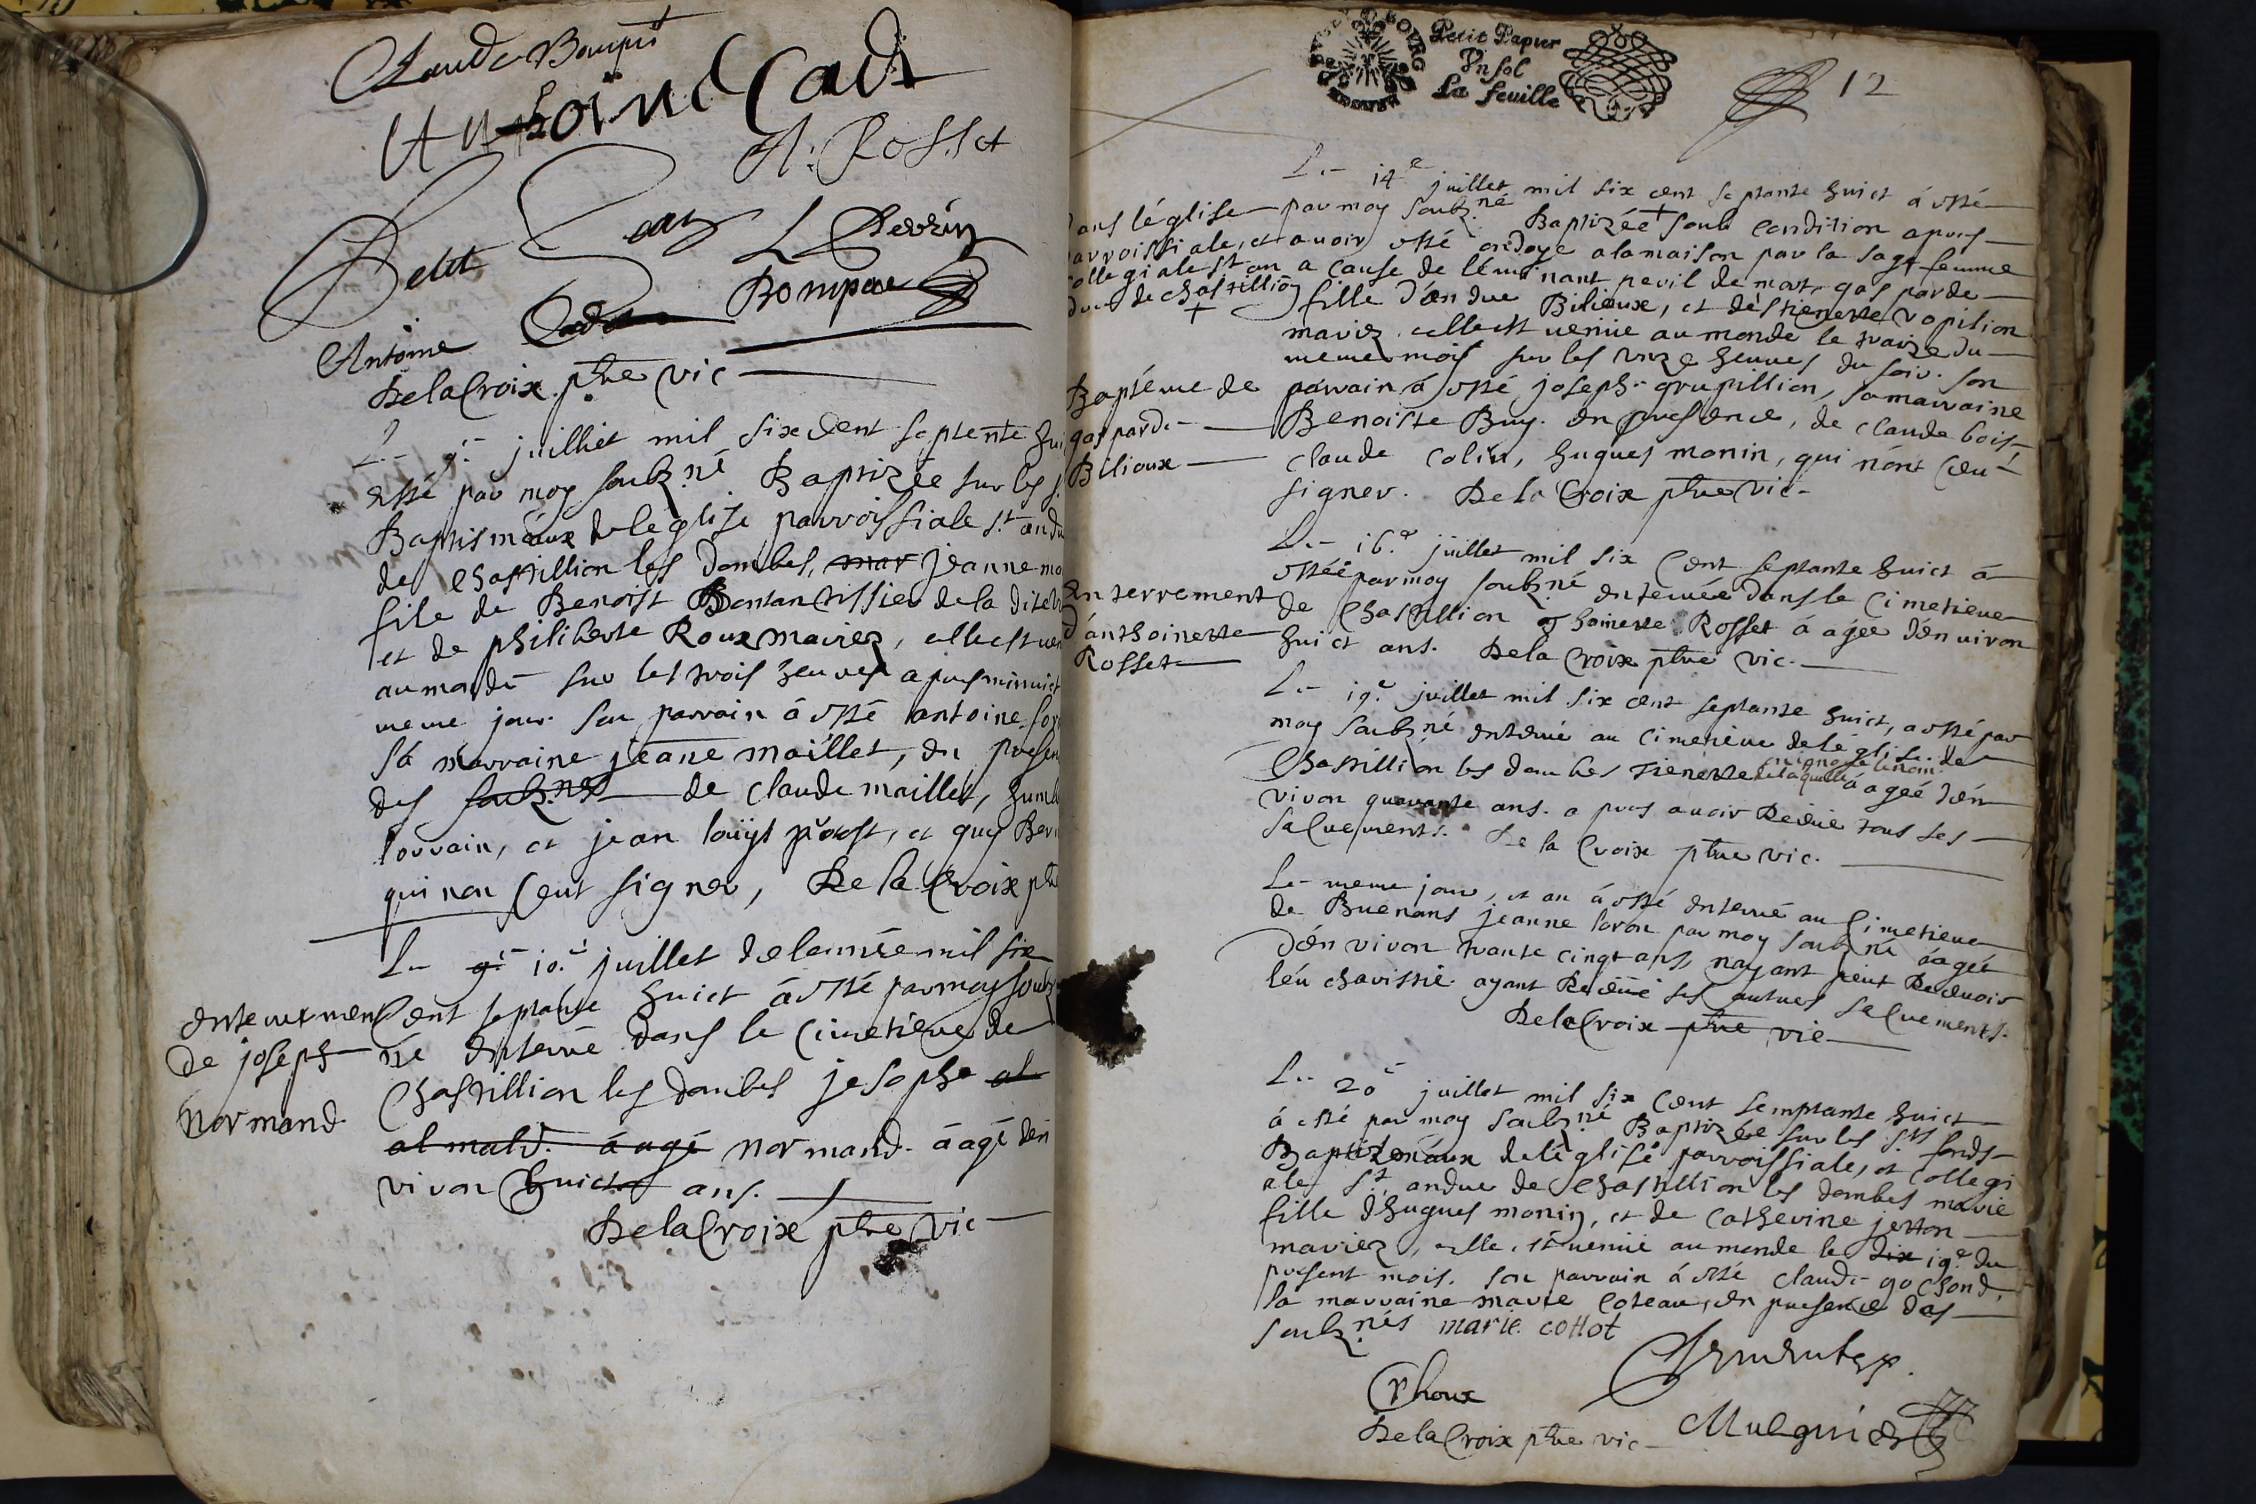 Claude Bompar
Anthoine Cadi
A: Rosset
Petit Jean L Perrin
Bompar
Antoine
DelaCroix ptre vic
Le 9e juilliet mil six cent septente hui
esté par moy soubz.né Baptizée sur les f
Baptismeaux de leglise parroissiale st andr
de Chastillion les dombes, mar jeanne ma
file de Benoist
et de philiberte Roux mariez, elle est ven
au monde sur les trois heures apres minuict
meme jour. son parrain á esté antoine
sá marraine jeane maillet, en presen
des soubz.nes de claude maillet, humb
lorrain, et jean loüys prost, et guy Ber
qui non ceut signer, De la Croix ptr
Le 9e 10.e juillet de lannée mil six
enterrement
cent septante huict á esté par moy soubz
de joseph
né enterré dans le cimetiere de
Chastillion les dombes jesophe al
normand
al mald. áagé normand. áagé den
viron huict ans.
DelaCroix ptre vic
Petit Papier
Vn sol
La feuille
12
Le 14e juillet mil six cent septante huict á esté
par moy soubz.né Baptizée + soub condition apres
avoir esté ondoyé a la maison par la sage femme
a cause de léminant peril de mort, gasparde
fille dandre Bilioux, et déstienette vopilion
mariez. elle est venüe au monde le traize du
meme mois sur les unze heures du soir. son
parrain á esté joseph grupillion, sa marraine
Benoiste Buy. en presence, de claude bois,
claude colin, hugues monin, qui nónt ceu
signer. De la Croix ptre vic.
dans léglise
parroissiale, et
collegiale st an
dre de chastillio
+
Baptéme de
gasparde
Bilioux
Le 16.e juillet mil six cent septante huict á
estée par moy soubz.né enterrée dans le cimetiere
de Chastillion Rosset áagée dénviron
huict ans. De la Croix ptre vic.
enterrement
dánthoinette
Rosset
Le 19.e juillet mil six cent septante huict, a esté par
moy soubz.né enterré au cimetiere de léglise de
Chastillion les dombes tienette áagée dén
viron quarante ans. apres avoir Receue tous ses
sacrements. De la Croix ptre vic.
Le meme jour, et an á esté enterré au cimetiere
de Buenans jeanne loron par moy soubz.né áagée
dénviron trante cinqt ans, nayant peut Recevoir
léucharistie ayant Receüe ses autres sacrements.
DelaCroix ptre vic
Le 20e juillet mil six cent semptante huict
á esté par moy soubz.né Baptizée sur les sts fonds
Baptizmáux de léglise parroissiale, et collegi
ale st andre de Chastillion les dombes marie
fille dhugues monin, et de Catherine jetton
mariez, elle est venüe au monde le dix 19.e du
present mois. son parrain á esté claude gochond,
la marraine marie Coteau, en presence des
soubz.nés marie cottot
Choux
DelaCroix ptre vic